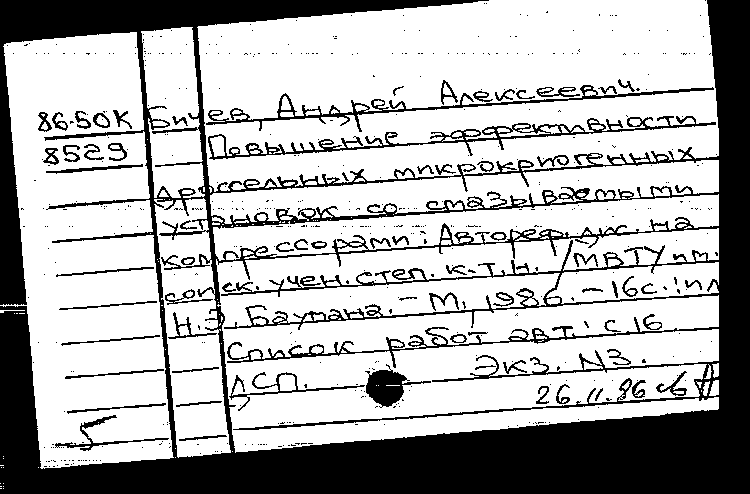 86-50К Бичев, Андрей Алексеевич.
8529 Повышение эффективности
дроссельных микрокриогенных
установок со смазываемыми
компрессорами: Автореф. дис. на
соиск. учен. степ. к.т.н. /МВТУ им.
Н.Э. Баумана. - М., 1986. - 16с.: ил
Список работ авт.: с.16.
ДСП. Экз. N3.
26.11.86
5